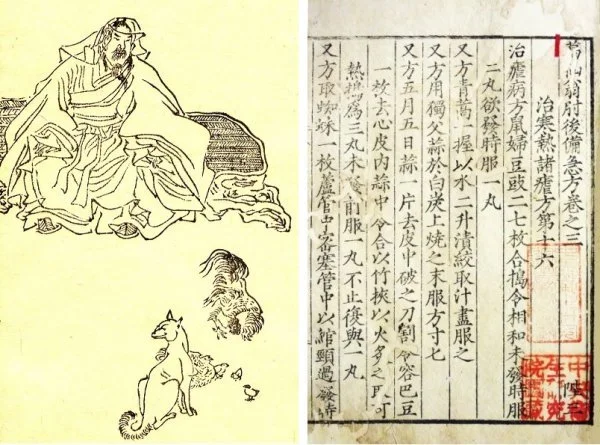 葛仙翁肘後備急方卷之三
治寒熱諸瘧方第十六
治瘧病方鼠婦豆豉二七枚合搗令相和未發時服
二丸欲發時服一丸
又方青蒿一握以水二升漬絞取汁盡服之
又方用獨父蒜於白炭上燒之末服方寸七
又方五月五日蒜一片去皮中破之刀割令容巴豆
一枚去心皮內蒜中令合以竹挾以火炙之取可
熱搗為三丸未發前服一丸不止復與一丸
又方取蜘蛛一枚蘆管中密塞管中以綰頸過發時